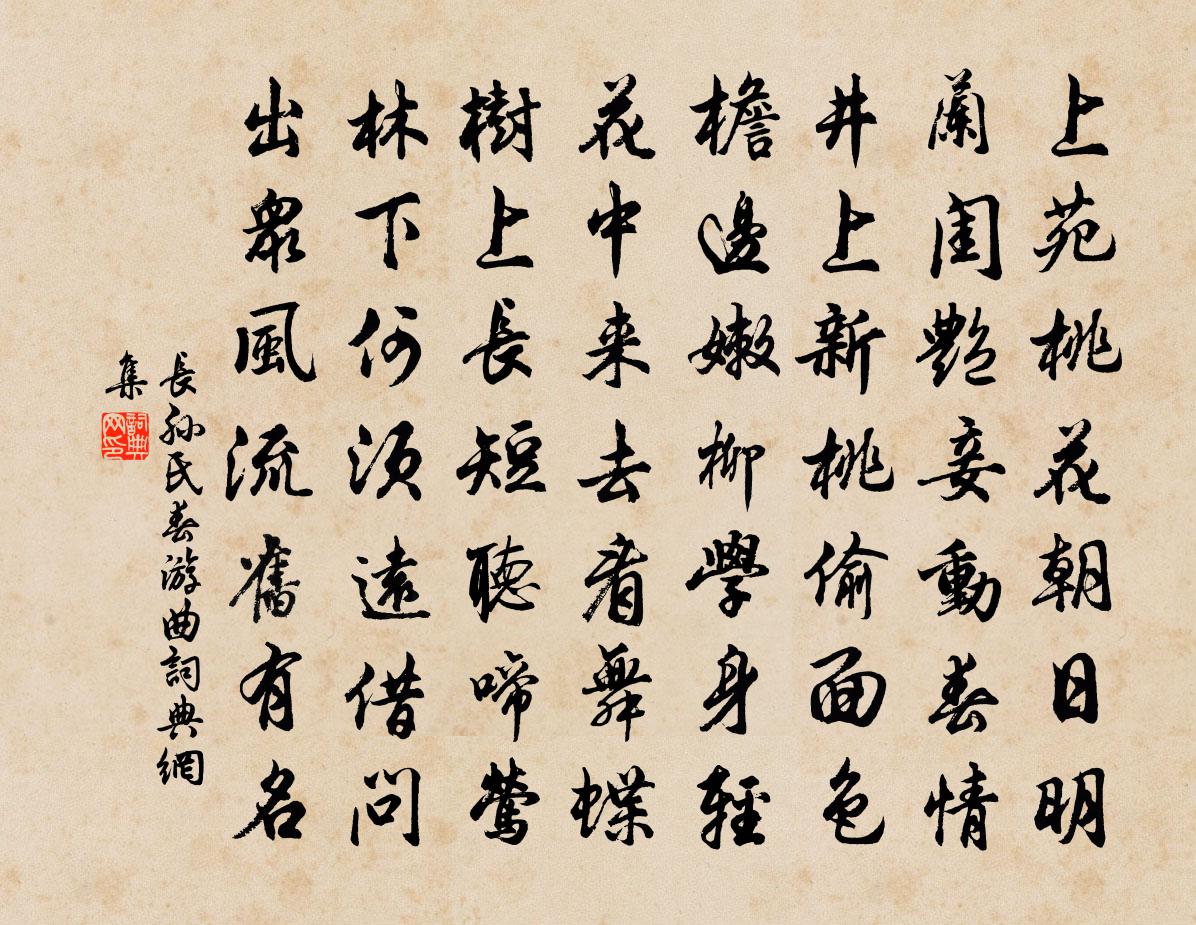 上苑桃花朝日明
蘭閨艷妾動春情
井上新桃偷面色
檐邊嫩柳學身輕
花中来去看舞蝶
樹上長短聽啼鶯
林下何須遠借問
出眾風流舊有名
長孫氏春游曲詞典網
集
詞典
网印